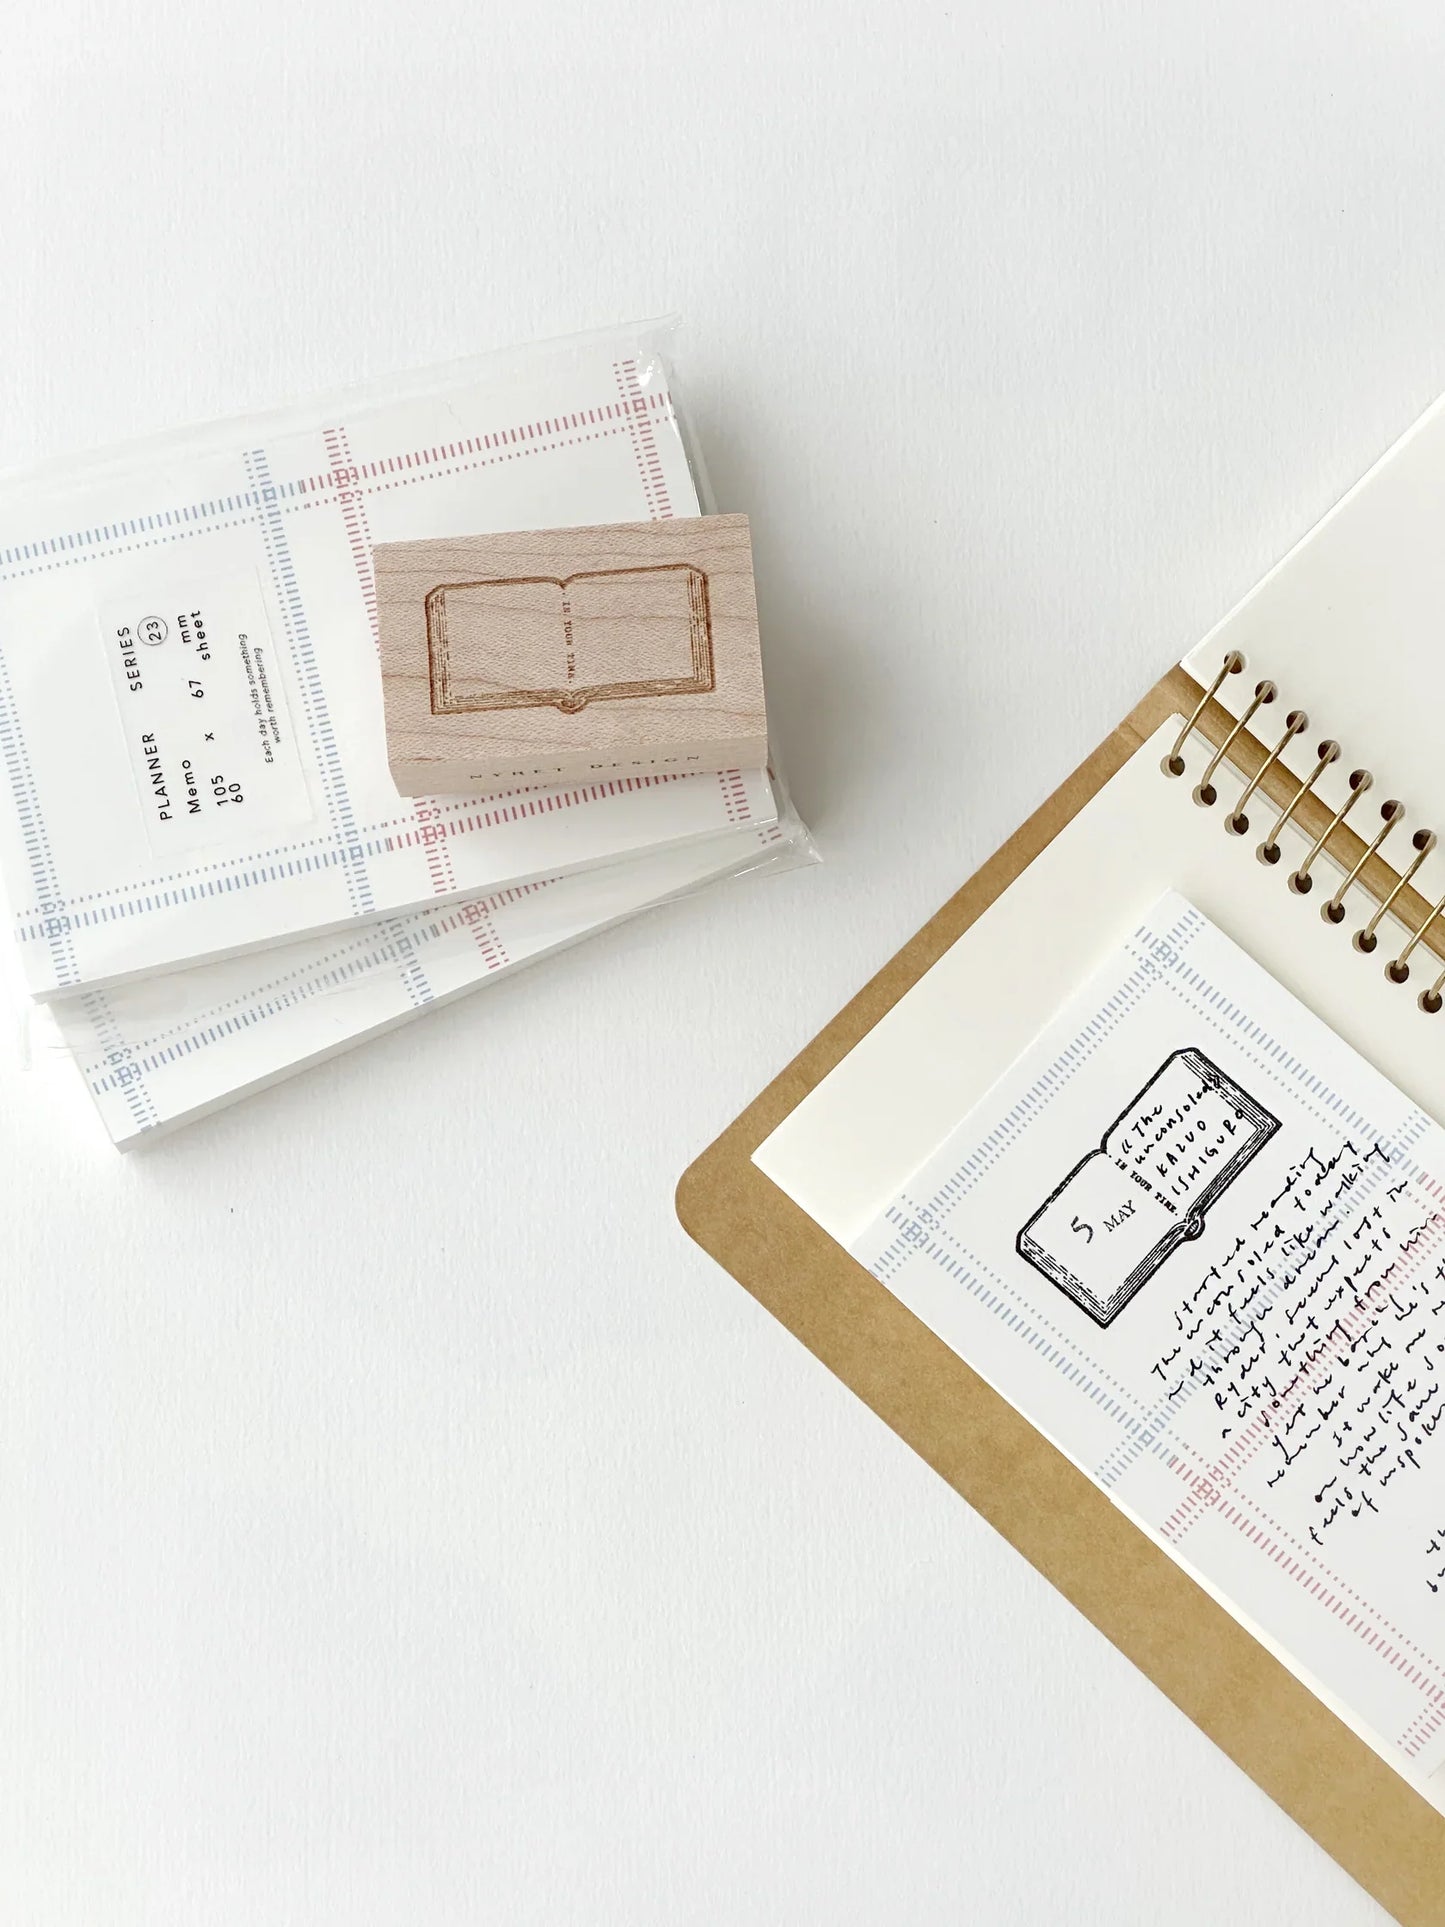 PLANNER SERIES 23
Memo
105 x 67 mm
60 sheet
Each day holds something
worth remembering
IN YOUR TIME.
NYRET DESIGN
《The
unconsoled》
KAZUO
ISHIGURO
IN YOUR TIME.
5 MAY
Started reading
The unconsoled today
and it feels like walking
through a dream.
Ryder, seems lost in
a city that expects
something from him
yet he barely
number why he's t
It make me r
on how life so
feels the same
of unspoken